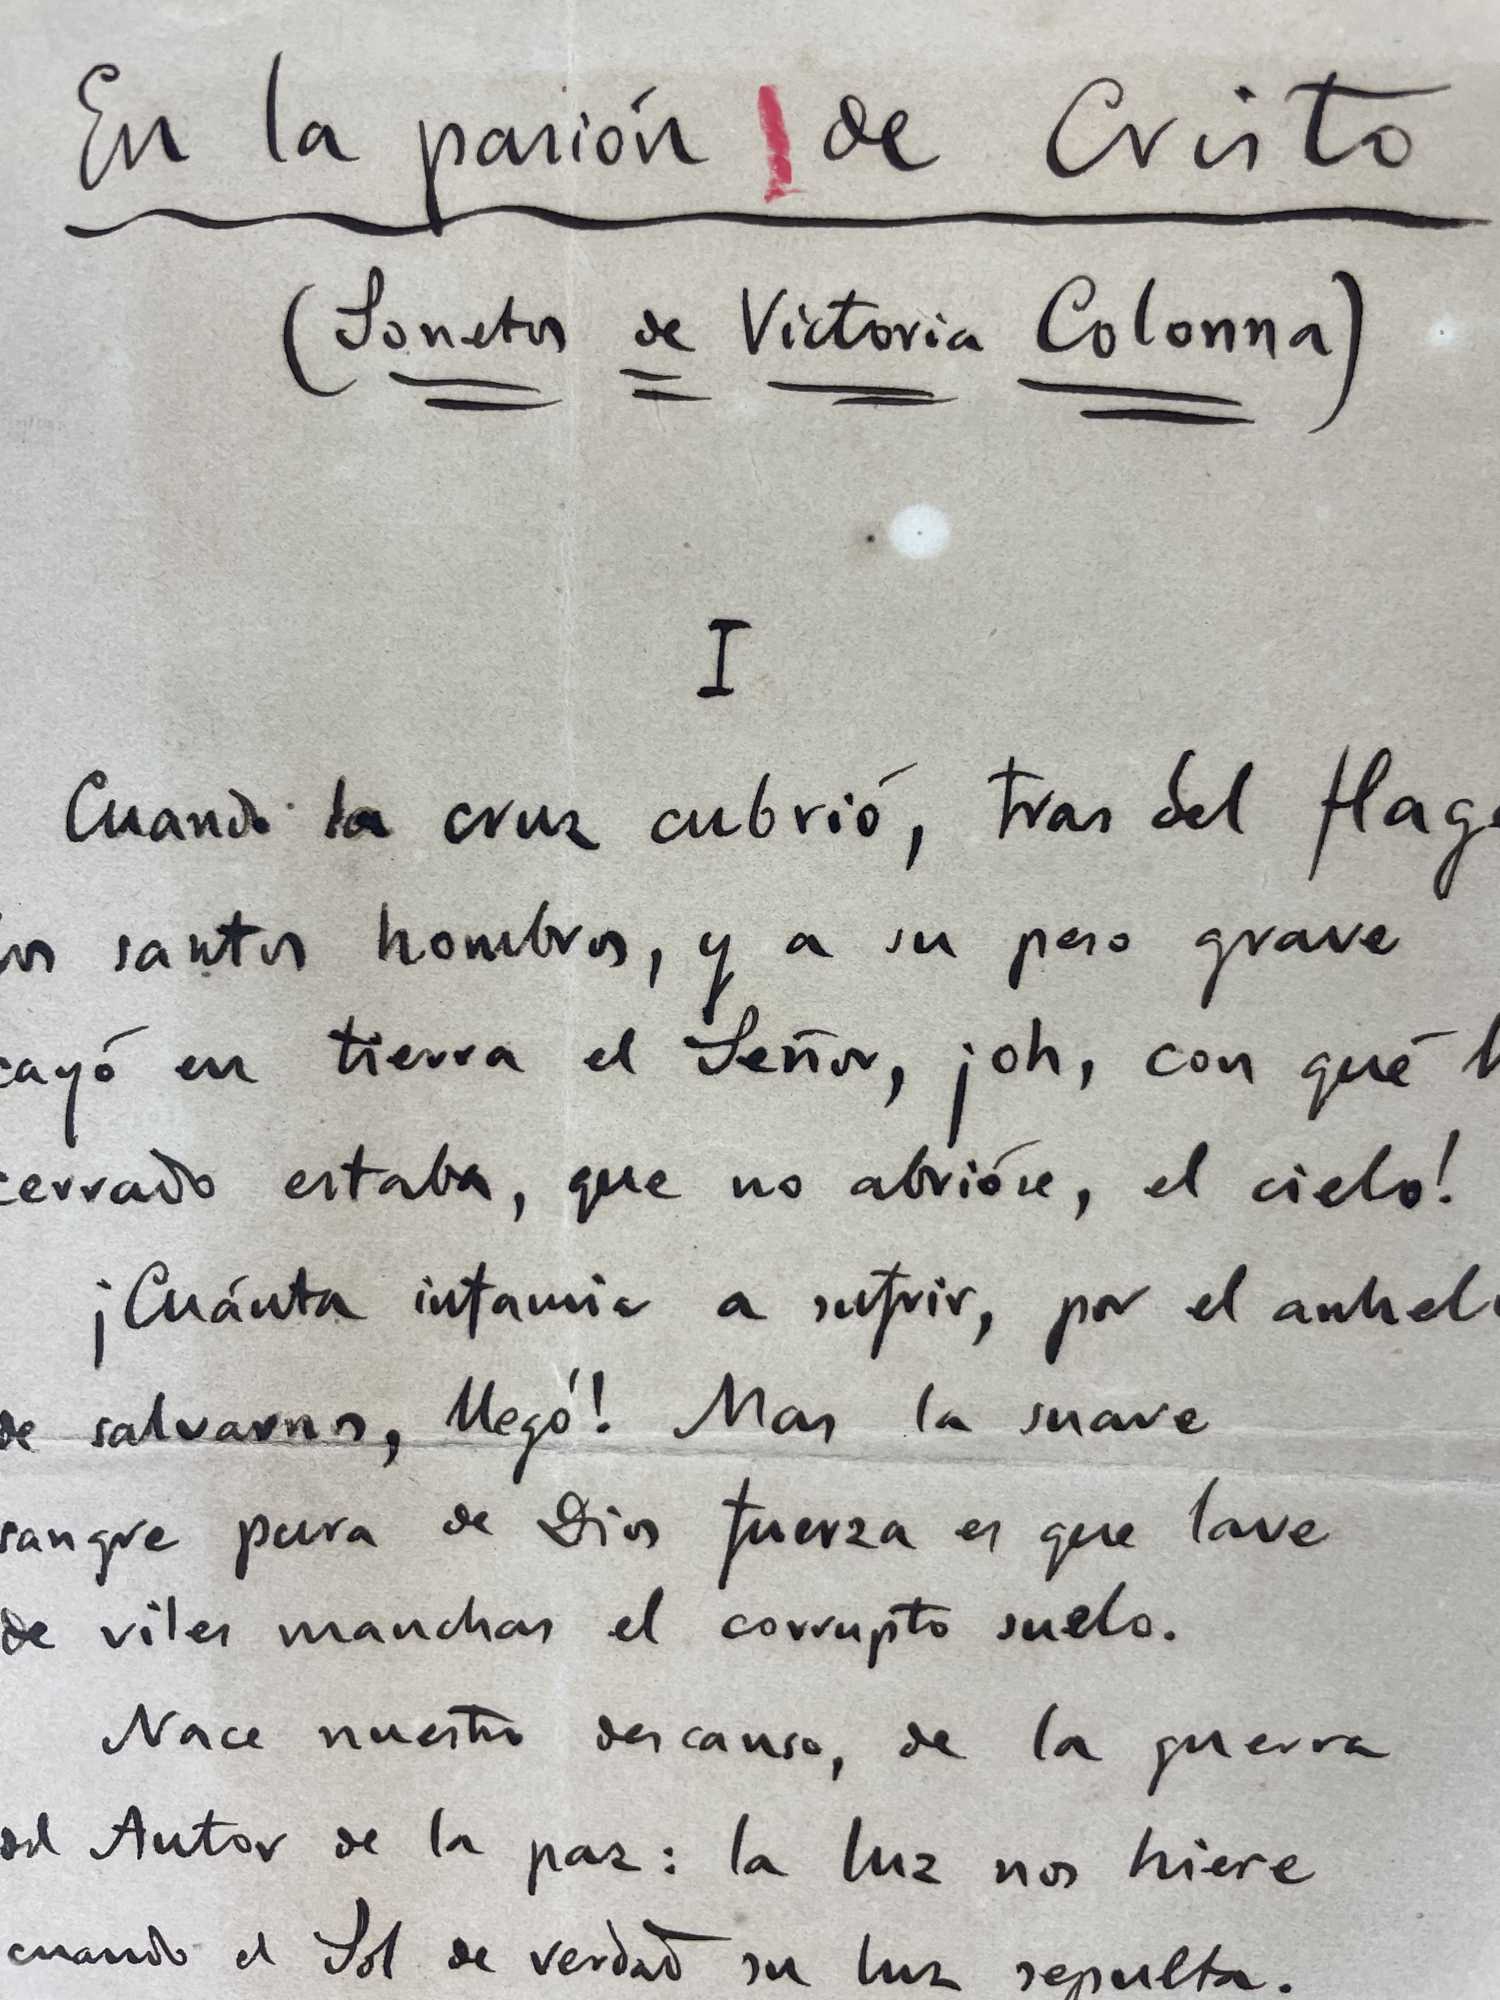 En la pasión de Cristo
(Sonetos de Victoria Colonna)
I
Cuando la cruz cubrió, tras del flage
los santos hombros, y a su peso grave
cayó en tierra el Señor, ¡oh, con qué
cerrado estaba, que no abrióse, el cielo!
¡Cuánta infamia a sufrir, por el anhelo
de salvarnos, llegó! Mas la suave
sangre pura de Dios fuerza es que lave
de viles manchas el corrupto suelo.
Nace nuestro descanso, de la guerra
del Autor de la paz: la luz nos hiere
cuando el Sol de verdad su luz sepulta.